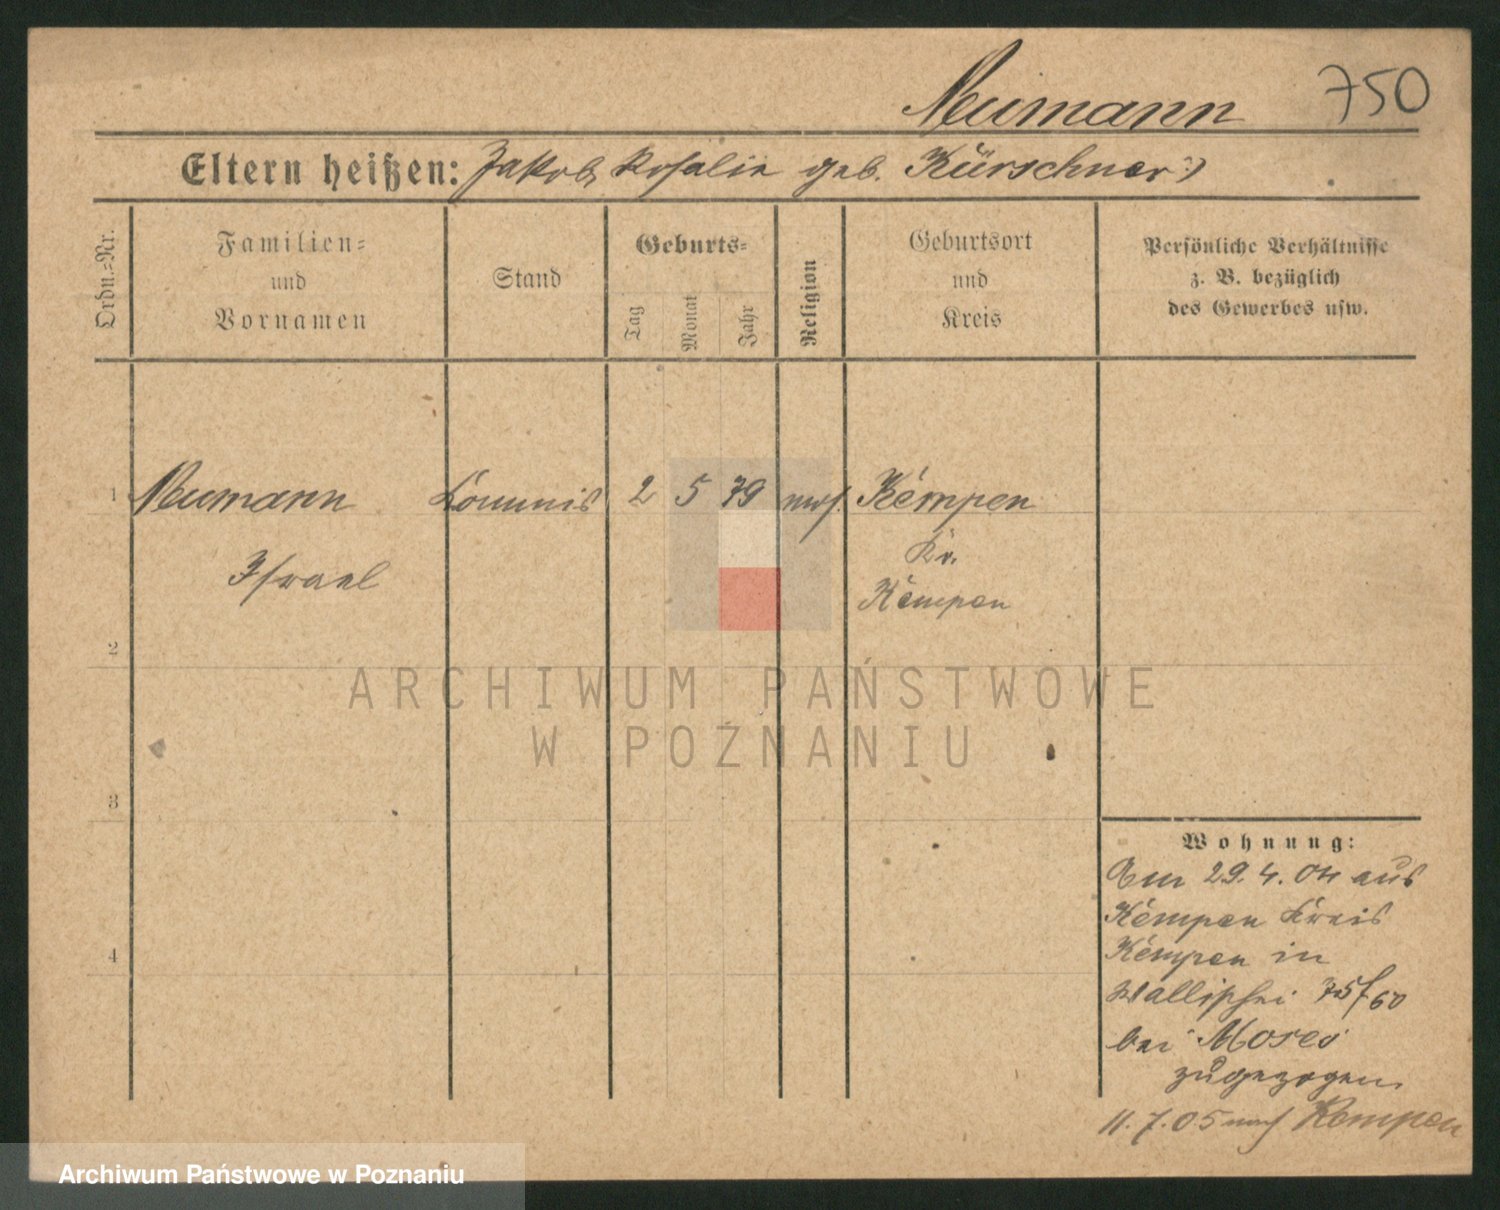 Neumann 750
Eltern heißen: Jakob, Rosalie geb. Kürschner
Ordn.=Nr.
Familien=
und
Vornamen
Stand
Geburts=
Tag
Monat
Jahr
Religion
Geburtsort
und
Kreis
Persönliche Verhältnisse
z. B. bezüglich
des Gewerbes usw.
1 Neumann Commis 2 5 79 mos. Kempen
Israel Kr.
Kempen
2
3
4
ARCHIWUM PAŃSTWOWE
W POZNANIU
Wohnung:
Am 29. 4. 04 aus
Kempen Kreis
Kempen in
Wallischei 75/60
bei Moses
zugezogen.
11. 7. 05 nach Kempen
Archiwum Państwowe w Poznaniu